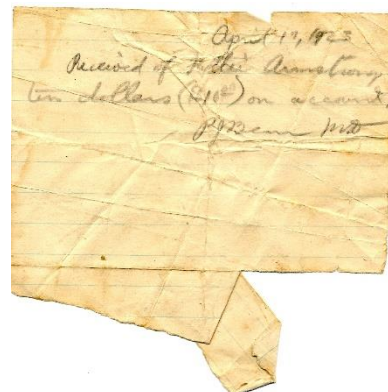 April 1", 1923
Received of Armstrong
ten dollars ($10⁰⁰) on account
MD